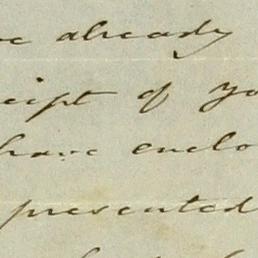 ve already
ceipt of yo
have enclo
presented